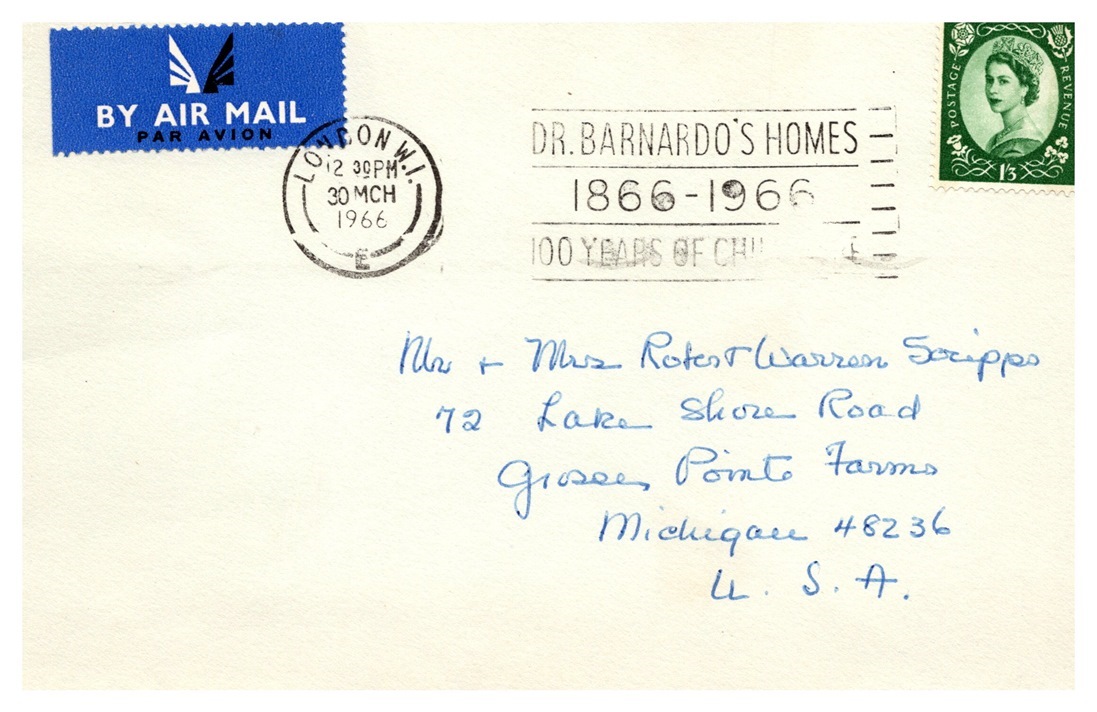 BY AIR MAIL
PAR AVION
LONDON W.1.
12 30PM
30 MCH
1966
E
DR. BARNARDO'S HOMES
1866-1966
100 YEARS OF
POSTAGE REVENUE
1/3
Mr + Mrs Robert Warren Scripps
72 Lake Shore Road
Grosse Pointe Farms
Michigan 48236
U. S. A.